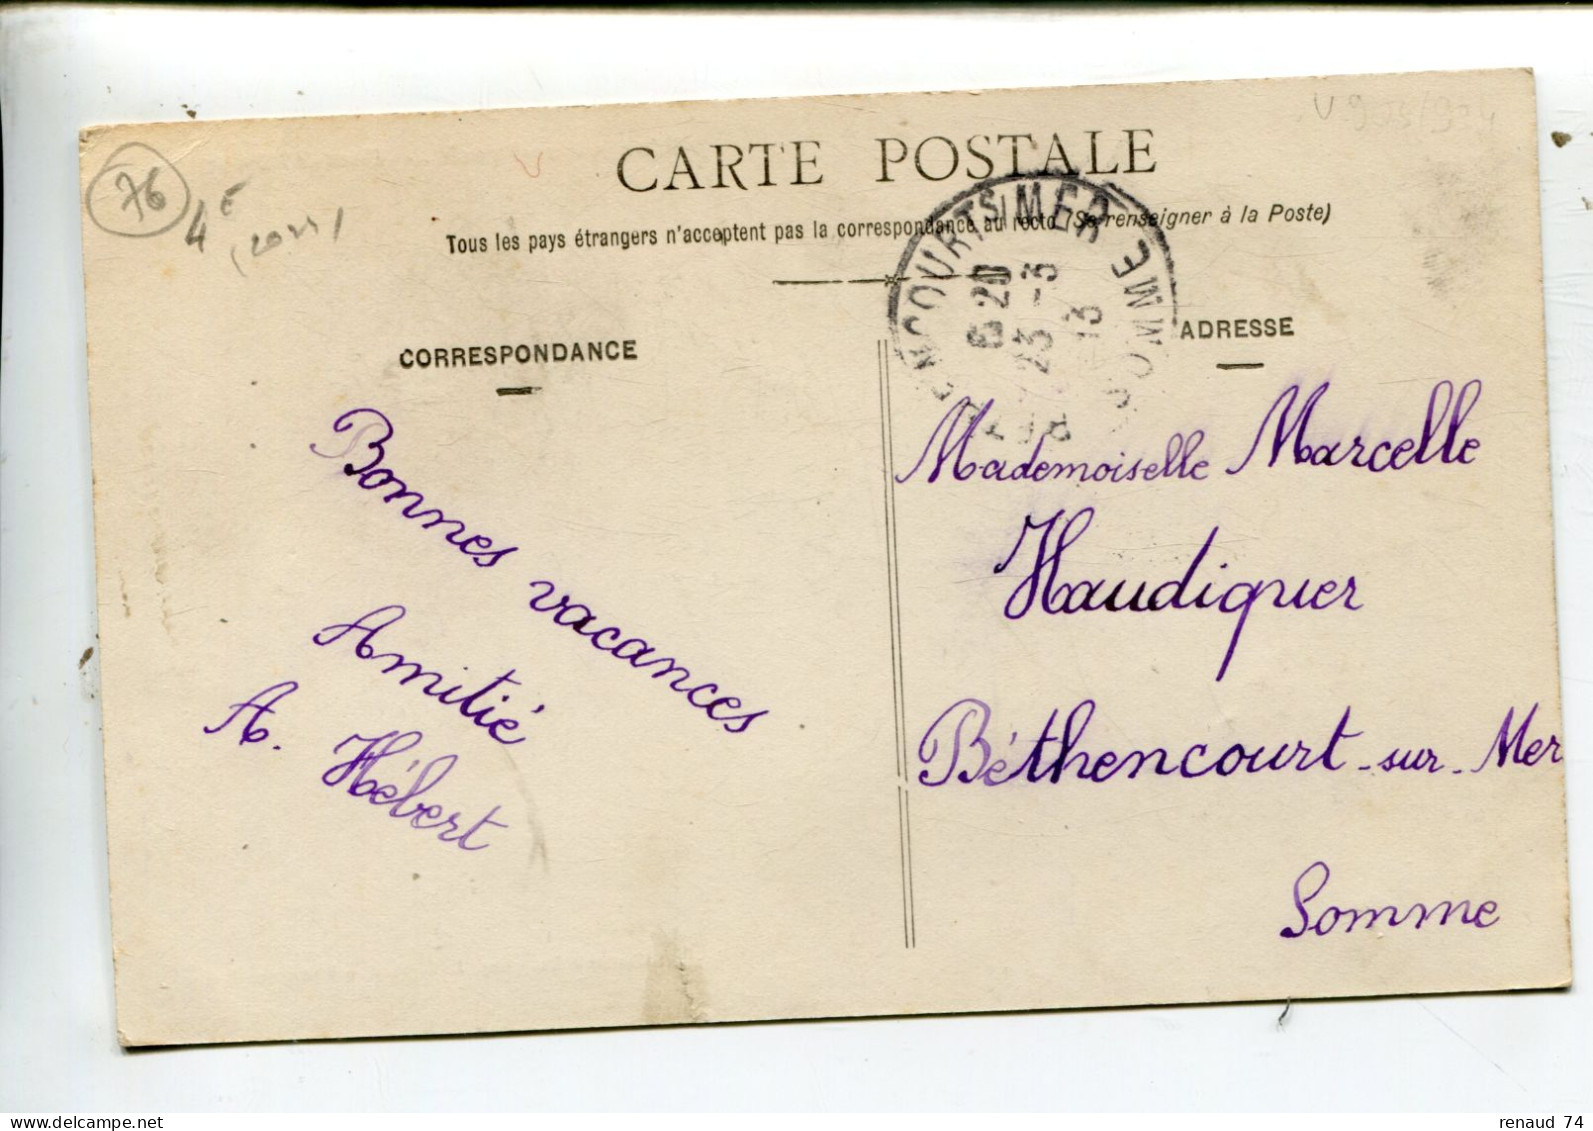 CARTE POSTALE
Tous les pays étrangers n'acceptent pas la correspondance au recto (Se renseigner à la Poste)
76
4€
CORRESPONDANCE
ADRESSE
NCOURT S/ MER SOMME
6 20
23 -3
13
Bonnes vacances
Amitié
A. Hébert
Mademoiselle Marcelle
Haudiquer
Béthencourt-sur-Mer
Somme
renaud 74